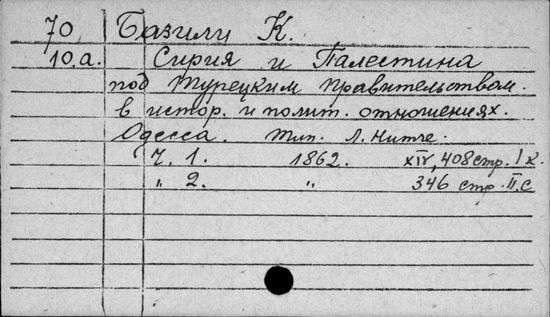 70 Базили К.
10.а. Сирия и Палестина
под турецким правительством.
в истор. и полит. отношениях.
Одесса. тип. Л. Нитче.
Ч. 1. 1862. XIV, 408 стр. I к.
" 2. " 346 стр. II. с